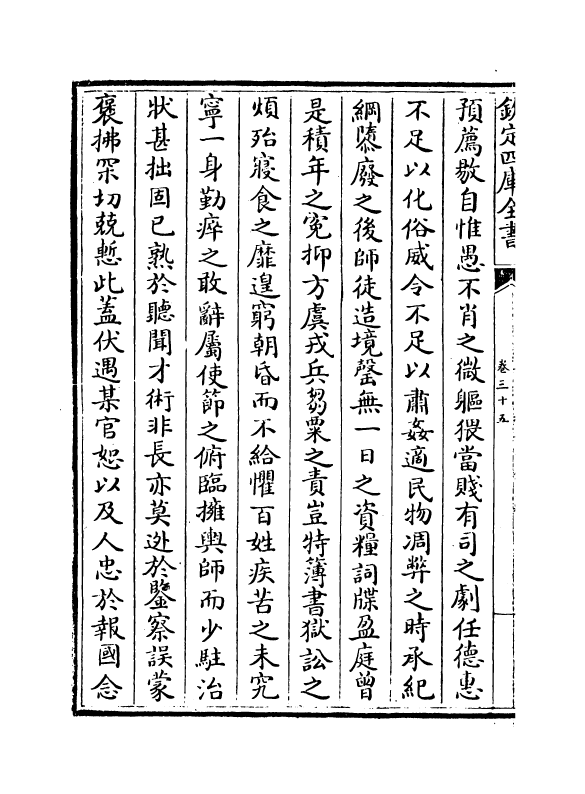 欽定四庫全書
卷三十五
預薦敭自惟愚不肖之微軀猥當賤有司之劇任德惠
不足以化俗威令不足以肅姦適民物凋弊之時承紀
綱隳廢之後師徒造境罄無一日之資糧詞牒盈庭曾
是積年之寃抑方虞戎兵芻粟之責豈特簿書獄訟之
煩殆寢食之靡遑窮朝昏而不給懼百姓疾苦之未究
寧一身勤瘁之敢辭屬使節之俯臨擁輿師而少駐治
狀甚拙固已熟於聽聞才術非長亦莫逃於鑒察誤蒙
褒拂罙切兢慙此蓋伏遇某官恕以及人忠於報國念